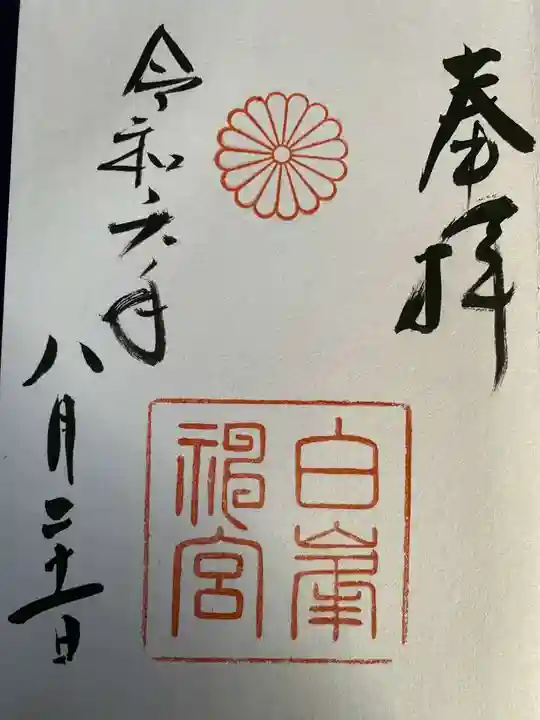 奉拝
白峯
神宮
令和六年
八月二十一日